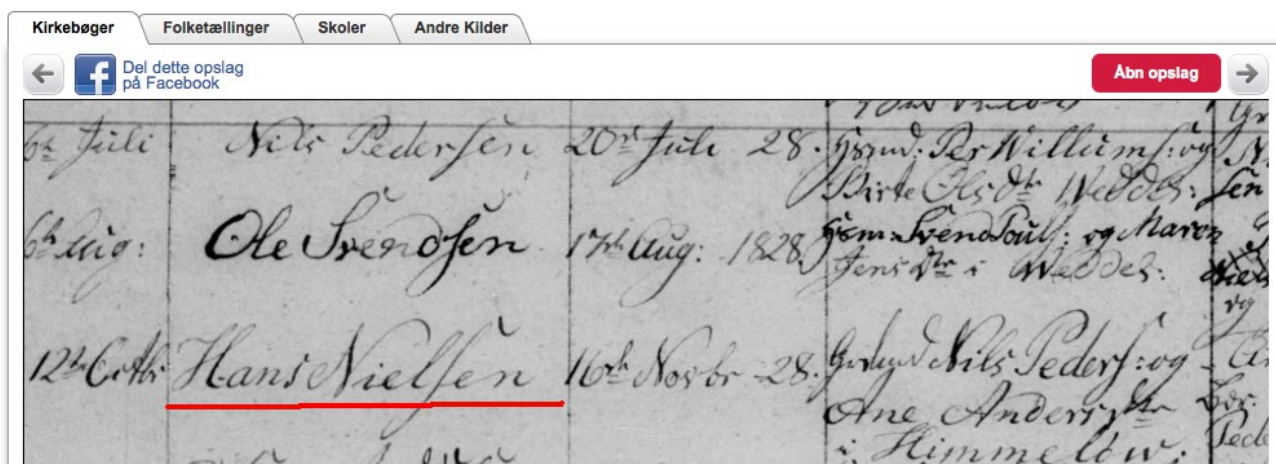 Kirkebøger Folketællinger Skoler Andre Kilder
Del dette opslag
på Facebook
Åbn opslag
6te Juli Nils Pedersen 20de Juli 28. Per Willums: og N.
Birte Ols Dtr Weddes: sen
6te Aug: Ole Svendsen 17de Aug: 1828 Svend Pouls: og Maren
Jens Dtr i Weddes:
og
12te Octbr Hans Nielsen 16de Novbr 28. Nils Peders: og
Ane Anders Dtr
i Himmelöw: